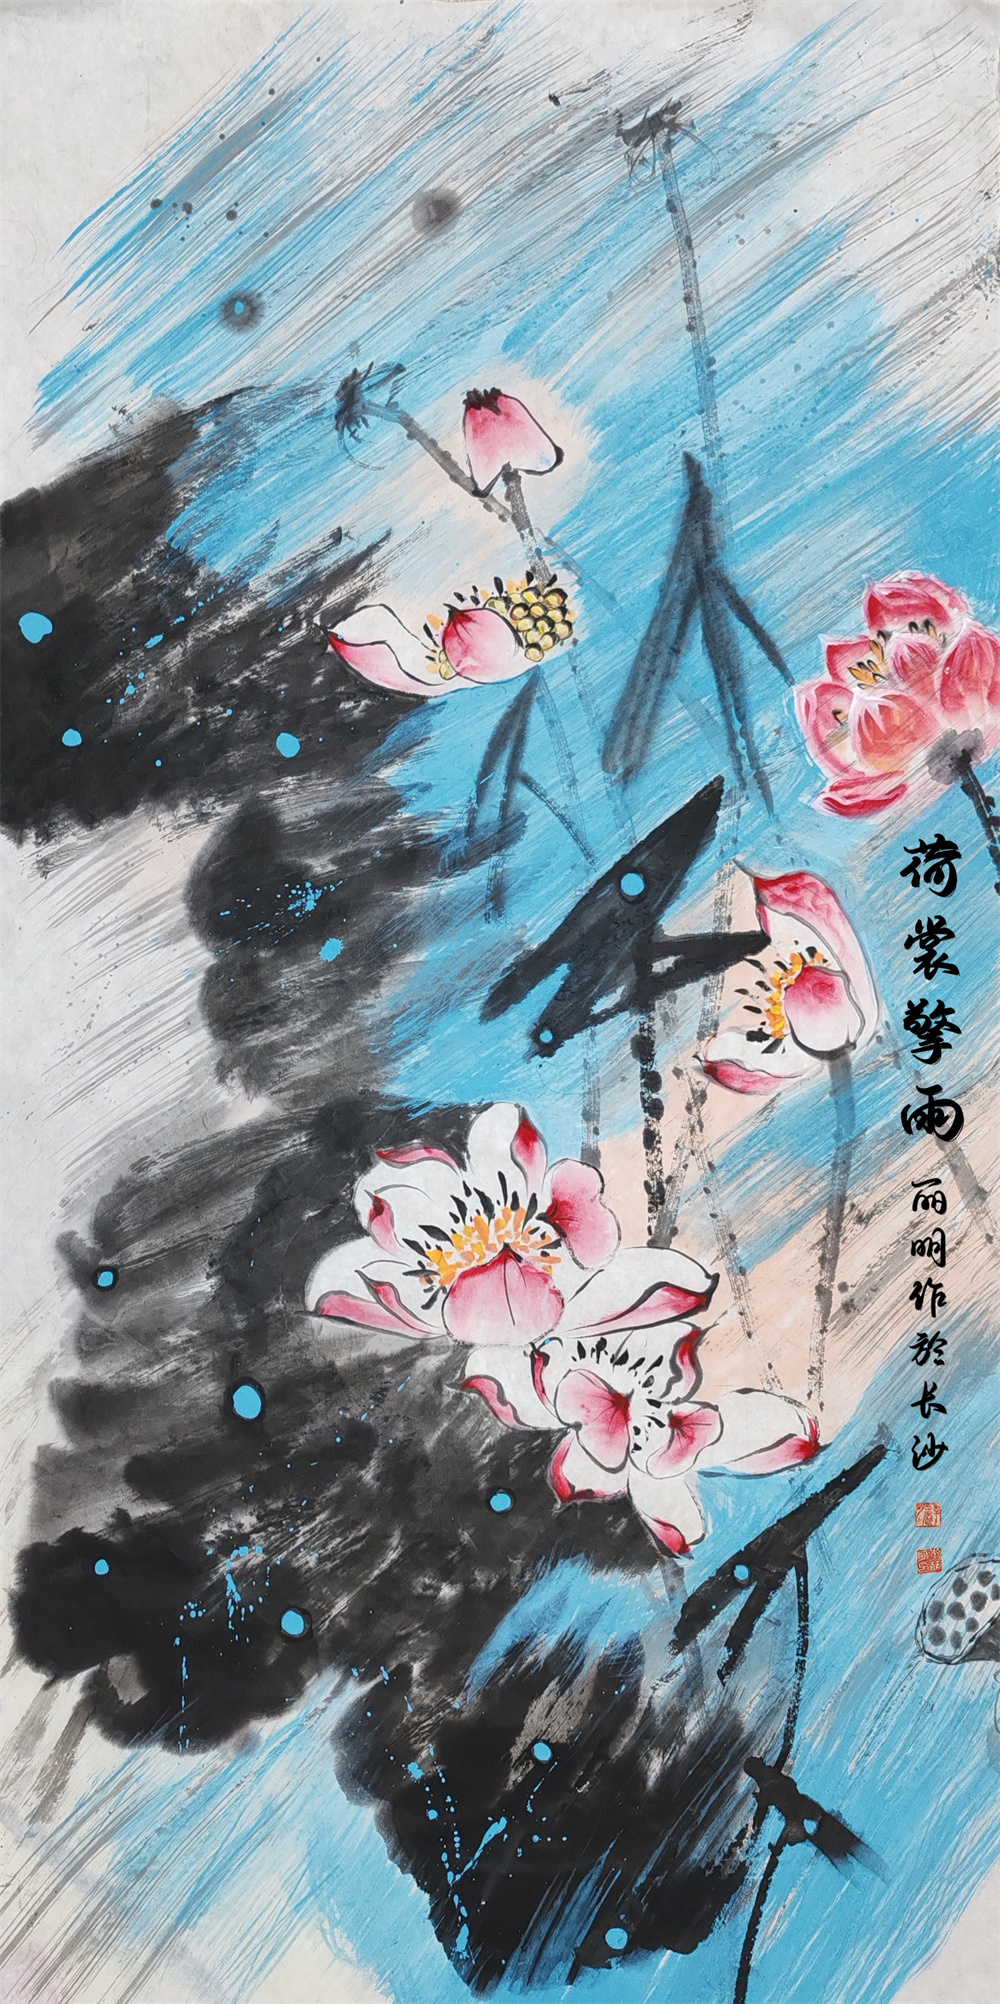 荷裳擎雨
丽明作於长沙